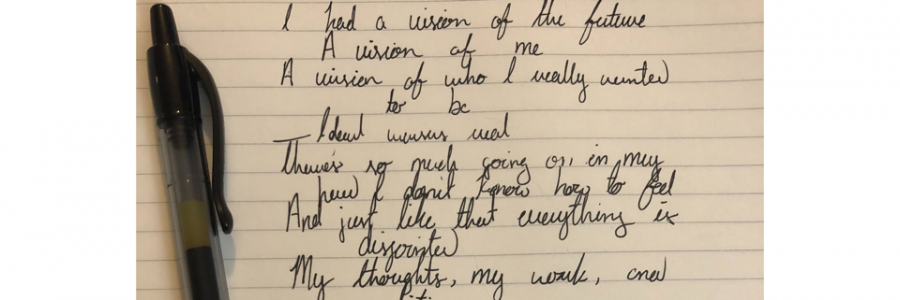 I had a vision of the future
A vision of me
A vision of who I really wanted
to be
— Ideal versus real
There's so much going on in my
head I don't know how to feel
And just like that everything is
disjointed
My thoughts, my work, and